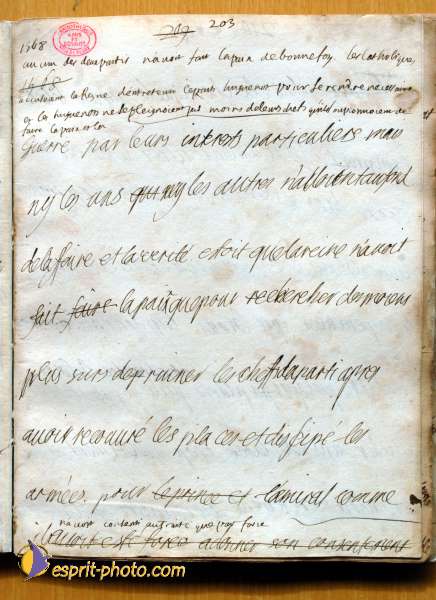 247 203
1568
aucun des deux partis n'avoit fait la paix de bonne foy. les catholiques
1568
accusoient la Reyne d'entretenir l'esprit huguenot pour se rendre necessaire
et les huguenots ne se pleignoient pas moins de leurs chefs qu'ils soupçonnoient de
faire la paix et la
guerre par leurs interests particuliers mais
ny les uns quy ny les autres n'alloient au fond
de l'affaire et la verité estoit que la reine n'avoit
fait faire la paix que pour rechercher des moiens
plus surs de ruiner les chefs du parti apres
avoir recouvré les places et dissipé les
armées. pour le prince et l'amiral comme
n'avoit contenti qu'il que faire
il avoit esté forcé a donner son consentement
esprit-photo.com